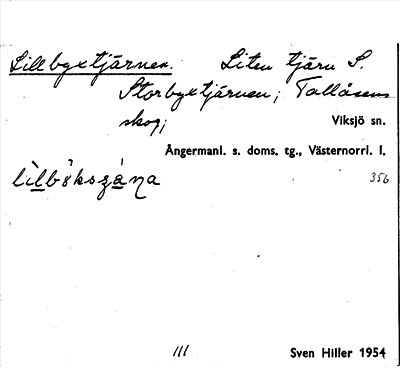 Lillbyxtjärnen. Liten tjärn S.
Storbyxtjärnen; Tallåsens
skog; Viksjö sn.
Ångermanl. s. doms. tg., Västernorrl. l.
356
111 Sven Hiller 1954